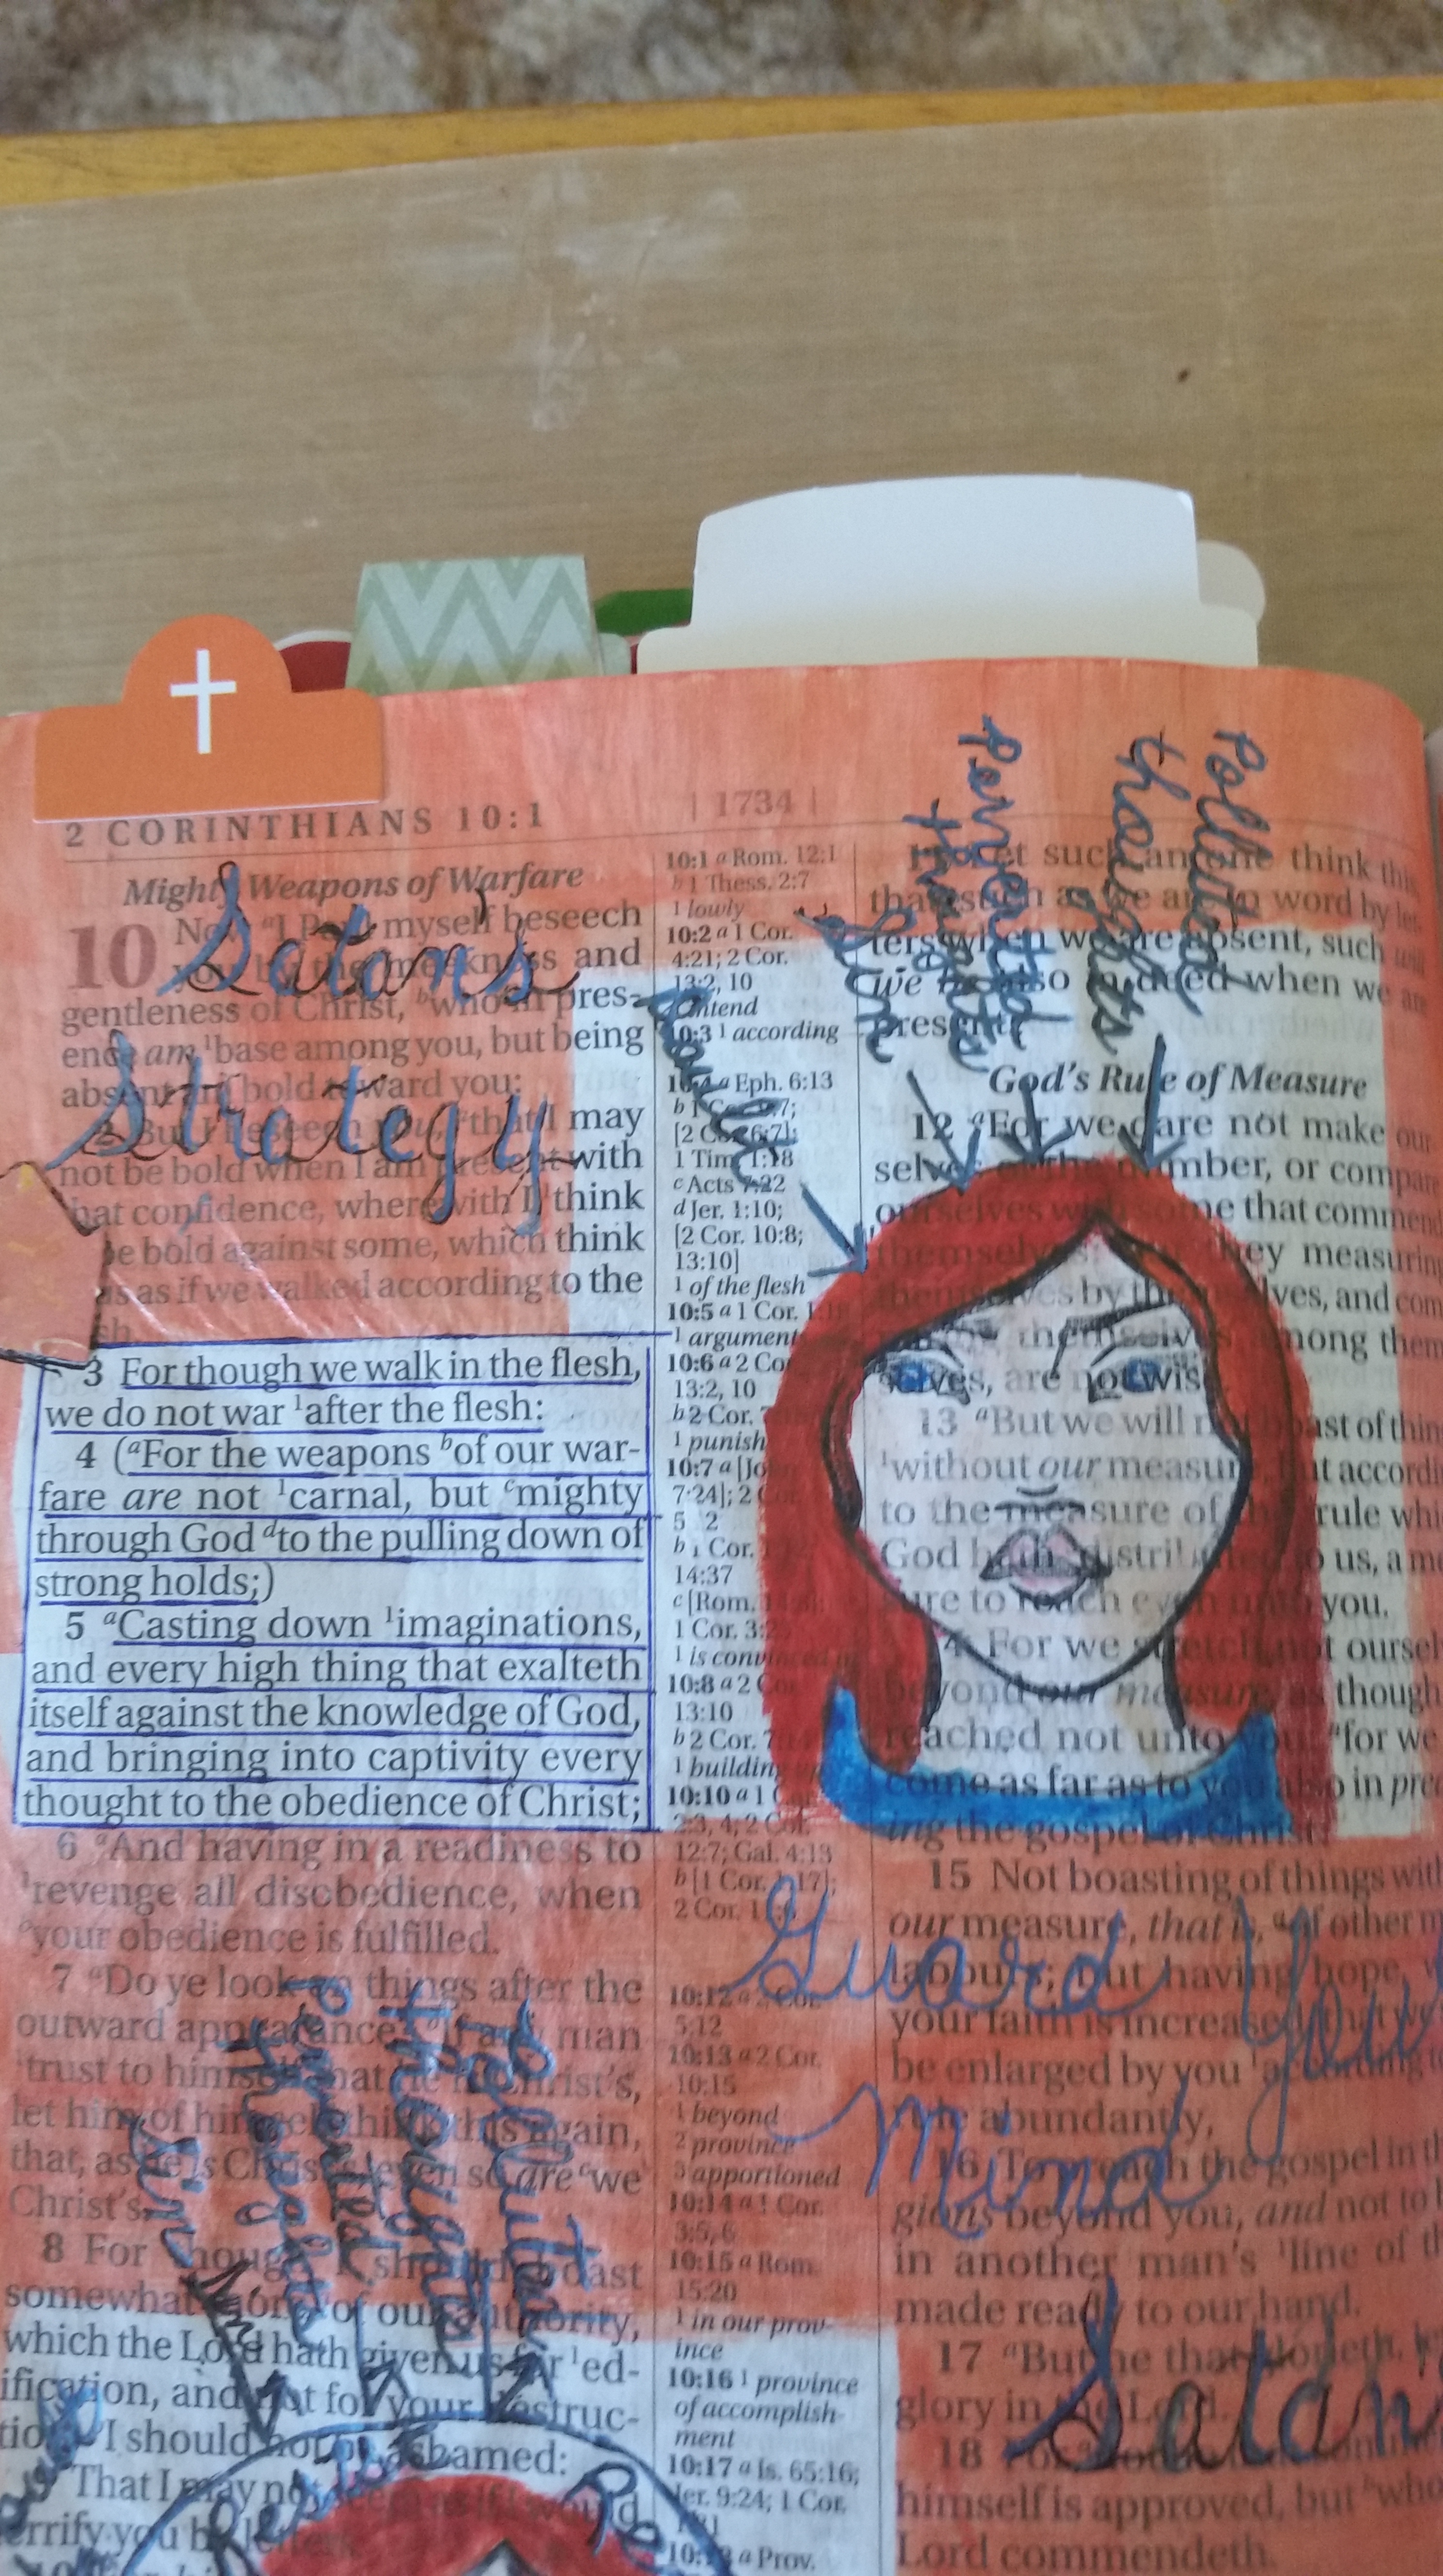 2 CORINTHIANS 10:1
| 1734 |
Mighty Weapons of Warfare
Satans
Strategy
10
myself beseech
and
gentleness of Christ, pres-
ence am base among you, but being
bold toward you:
that I may
not be bold when I am present with
that confidence, wherewith I think
be bold against some, which think
as if we walked according to the
3 For though we walk in the flesh,
we do not war 1after the flesh:
4 (aFor the weapons bof our war-
fare are not 1carnal, but cmighty
through God dto the pulling down of
strong holds;)
5 aCasting down 1imaginations,
and every high thing that exalteth
itself against the knowledge of God,
and bringing into captivity every
thought to the obedience of Christ;
6 aAnd having in a readiness to
1revenge all disobedience, when
your obedience is fulfilled.
7 aDo ye look on things after the
outward appearance? If any man
trust to himself that he is Christ's,
let him of himself think this again,
that, as he is Christ's, even so are cwe
Christ's.
8 For though I should boast
somewhat more of our authority,
which the Lord hath given us for 1ed-
ification, and not for your destruc-
tion, I should not be ashamed:
That I may not
terrify you by letters.
Polluted
thoughts
Perverted
thoughts
Sin
10:1 a Rom. 12:1
b 1 Thess. 2:7
1 lowly
10:2 a 1 Cor.
4:21; 2 Cor.
13:2, 10
intend
10:3 1 according
10:4 a Eph. 6:13
[2 Cor. 6:7];
1 Tim. 1:18
c Acts 7:22
d Jer. 1:10;
[2 Cor. 10:8;
13:10]
1 of the flesh
10:5 a 1 Cor.
1 argument
10:6 a 2 Cor
13:2, 10
b 2 Cor.
1 punish
10:7 a [Jo
7:24]; 2
5 2
b 1 Cor.
14:37
c [Rom.
1 Cor. 3:
1 is convinced
10:8 a 2 Co
13:10
b 2 Cor. 7
1 building
10:10 a 1 C
2:3, 4; 2 Cor.
12:7; Gal. 4:13
b [1 Cor. 1:17];
2 Cor.
10:12 a 2 Cor.
5:12
10:13 a 2 Cor.
10:15
1 beyond
2 province
3 apportioned
10:14 a 1 Cor.
3:5, 6
10:15 a Rom.
15:20
1 in our prov-
ince
10:16 1 province
of accomplish-
ment
10:17 a Is. 65:16;
Jer. 9:24; 1 Cor.
a Prov.
Polluted
thoughts
Perverted
thoughts
Sin
11 Let such an one think this,
that, such as we are in word by let-
ters when we are absent, such
we also in deed when we are
present.
God's Rule of Measure
12 aFor we dare not make our
selves of the number, or compare
ourselves with some that commend
themselves: they measuring
themselves by themselves, and com
themselves among them
selves, are not wise.
13 aBut we will not boast of thin
1without our measure, but accordi
to the measure of the rule whi
God hath distributed to us, a me
sure to reach even unto you.
For we stretch not oursel
beyond our measure, as though
reached not unto you: afor we
come as far as to you also in prea
ing the gospel of Christ:
15 Not boasting of things with
our measure, that is, aof other m
labours; but having hope, w
your faith is increased, that we
be enlarged by you 1according to
rule abundantly,
Guard You
Mind
16 To preach the gospel in th
gions beyond you, and not to b
in another man's 1line of th
made ready to our hand.
17 aBut he that glorieth, le
glory in the Lord.
Satan
18 For
himself is approved, but bwho
Lord commendeth.